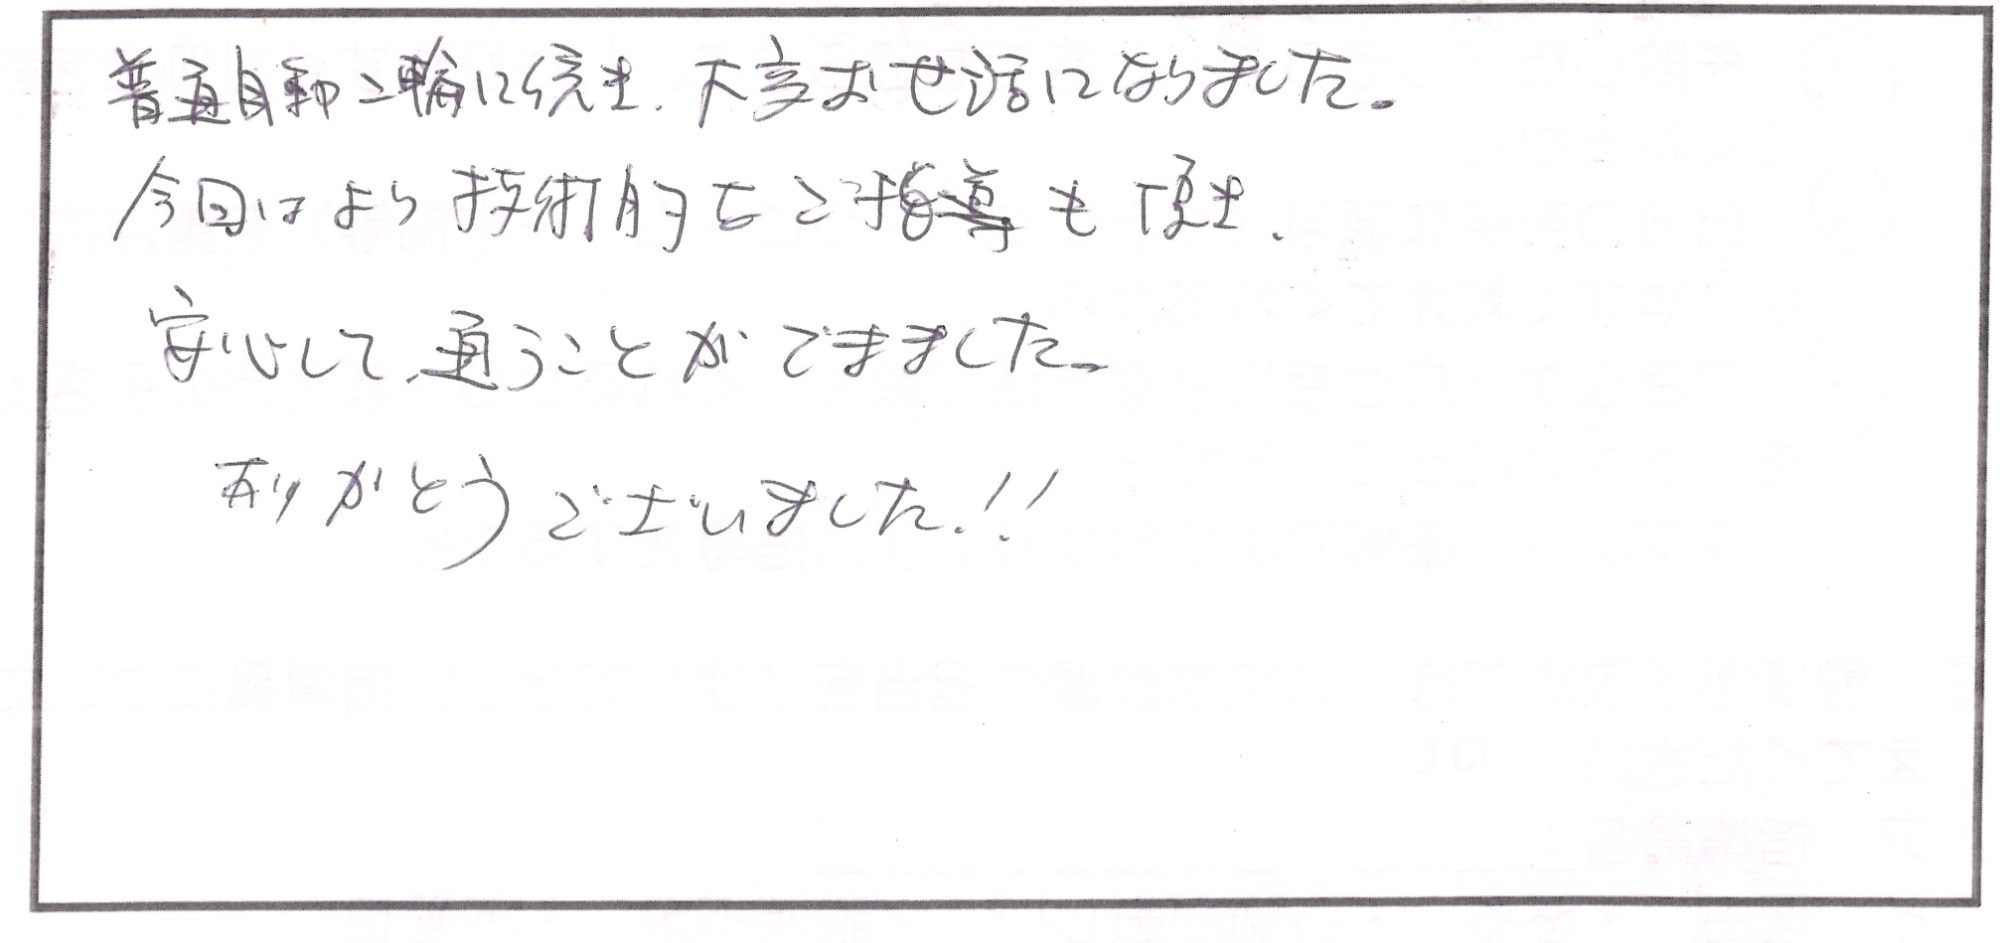 普通自動二輪に続き、大変お世話になりました。
今回はより技術的なご指導も頂き、
安心して、通うことができました。
ありがとうございました!!